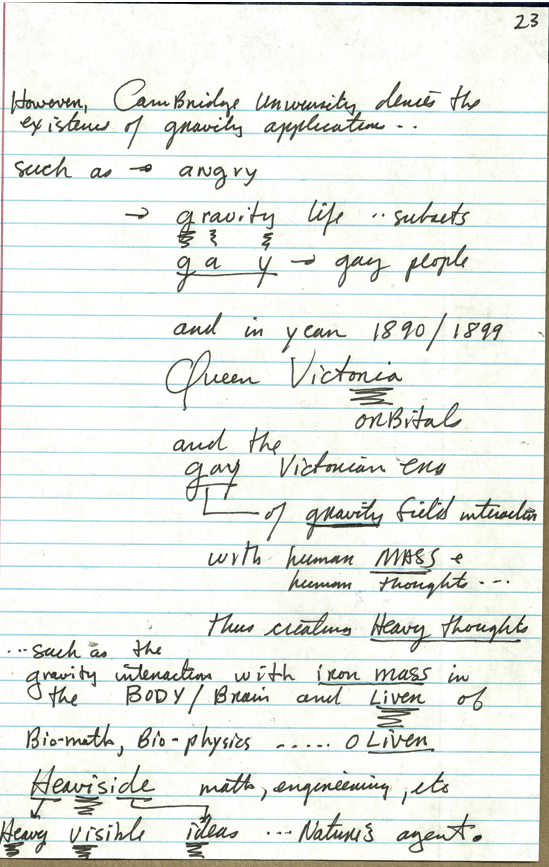 23
However, CamBridge University denies the
existence of gravity application..
such as → angry
→ gravity life ..subsets
g a y → gay people
and in year 1890/1899
Queen Victoria
orBitals
and the
gay Victorian era
of gravity field interaction
with human MASS &
human thoughts ...
thus creating Heavy thoughts
...such as the
gravity interaction with iron mass in
the BODY/Brain and Liver of
Bio-math, Bio-physics ..... O Liver
Heaviside math, engineering, etc
Heavy visible ideas ... Nature's agent.